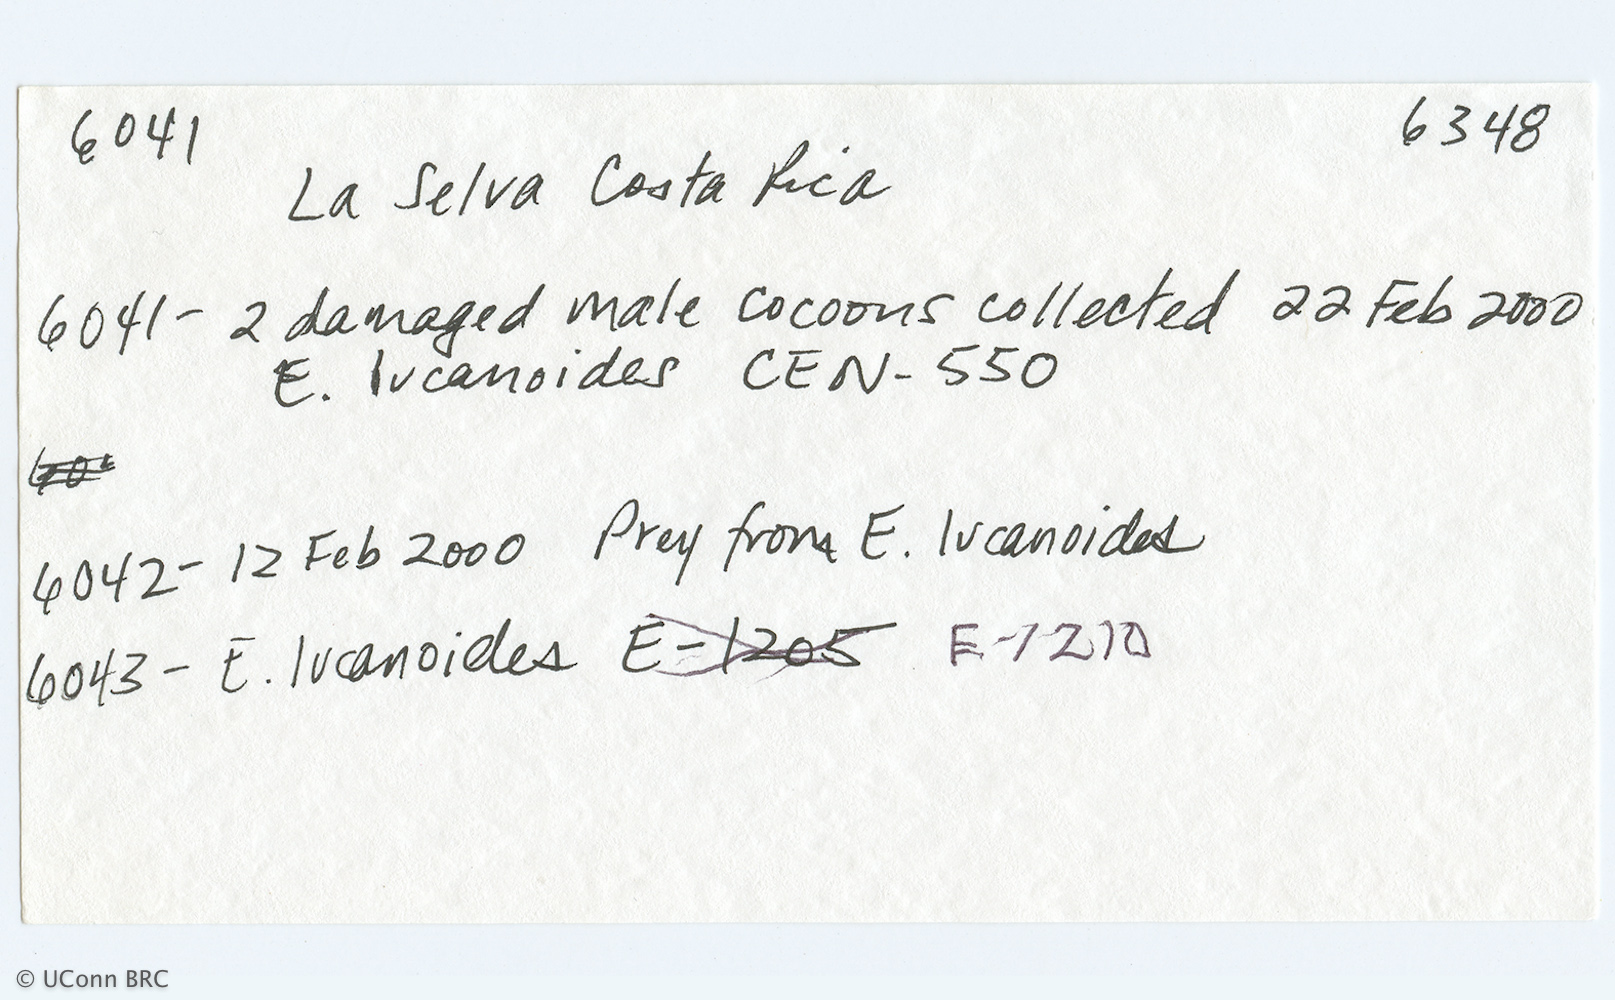 6041 6348
La Selva Costa Rica
6041- 2 damaged male cocoons collected 22 Feb 2000
E. lucanoides CEN-550
6042- 12 Feb 2000 Prey from E. lucanoides
6043- E. lucanoides E-1205 E-1210
© UConn BRC